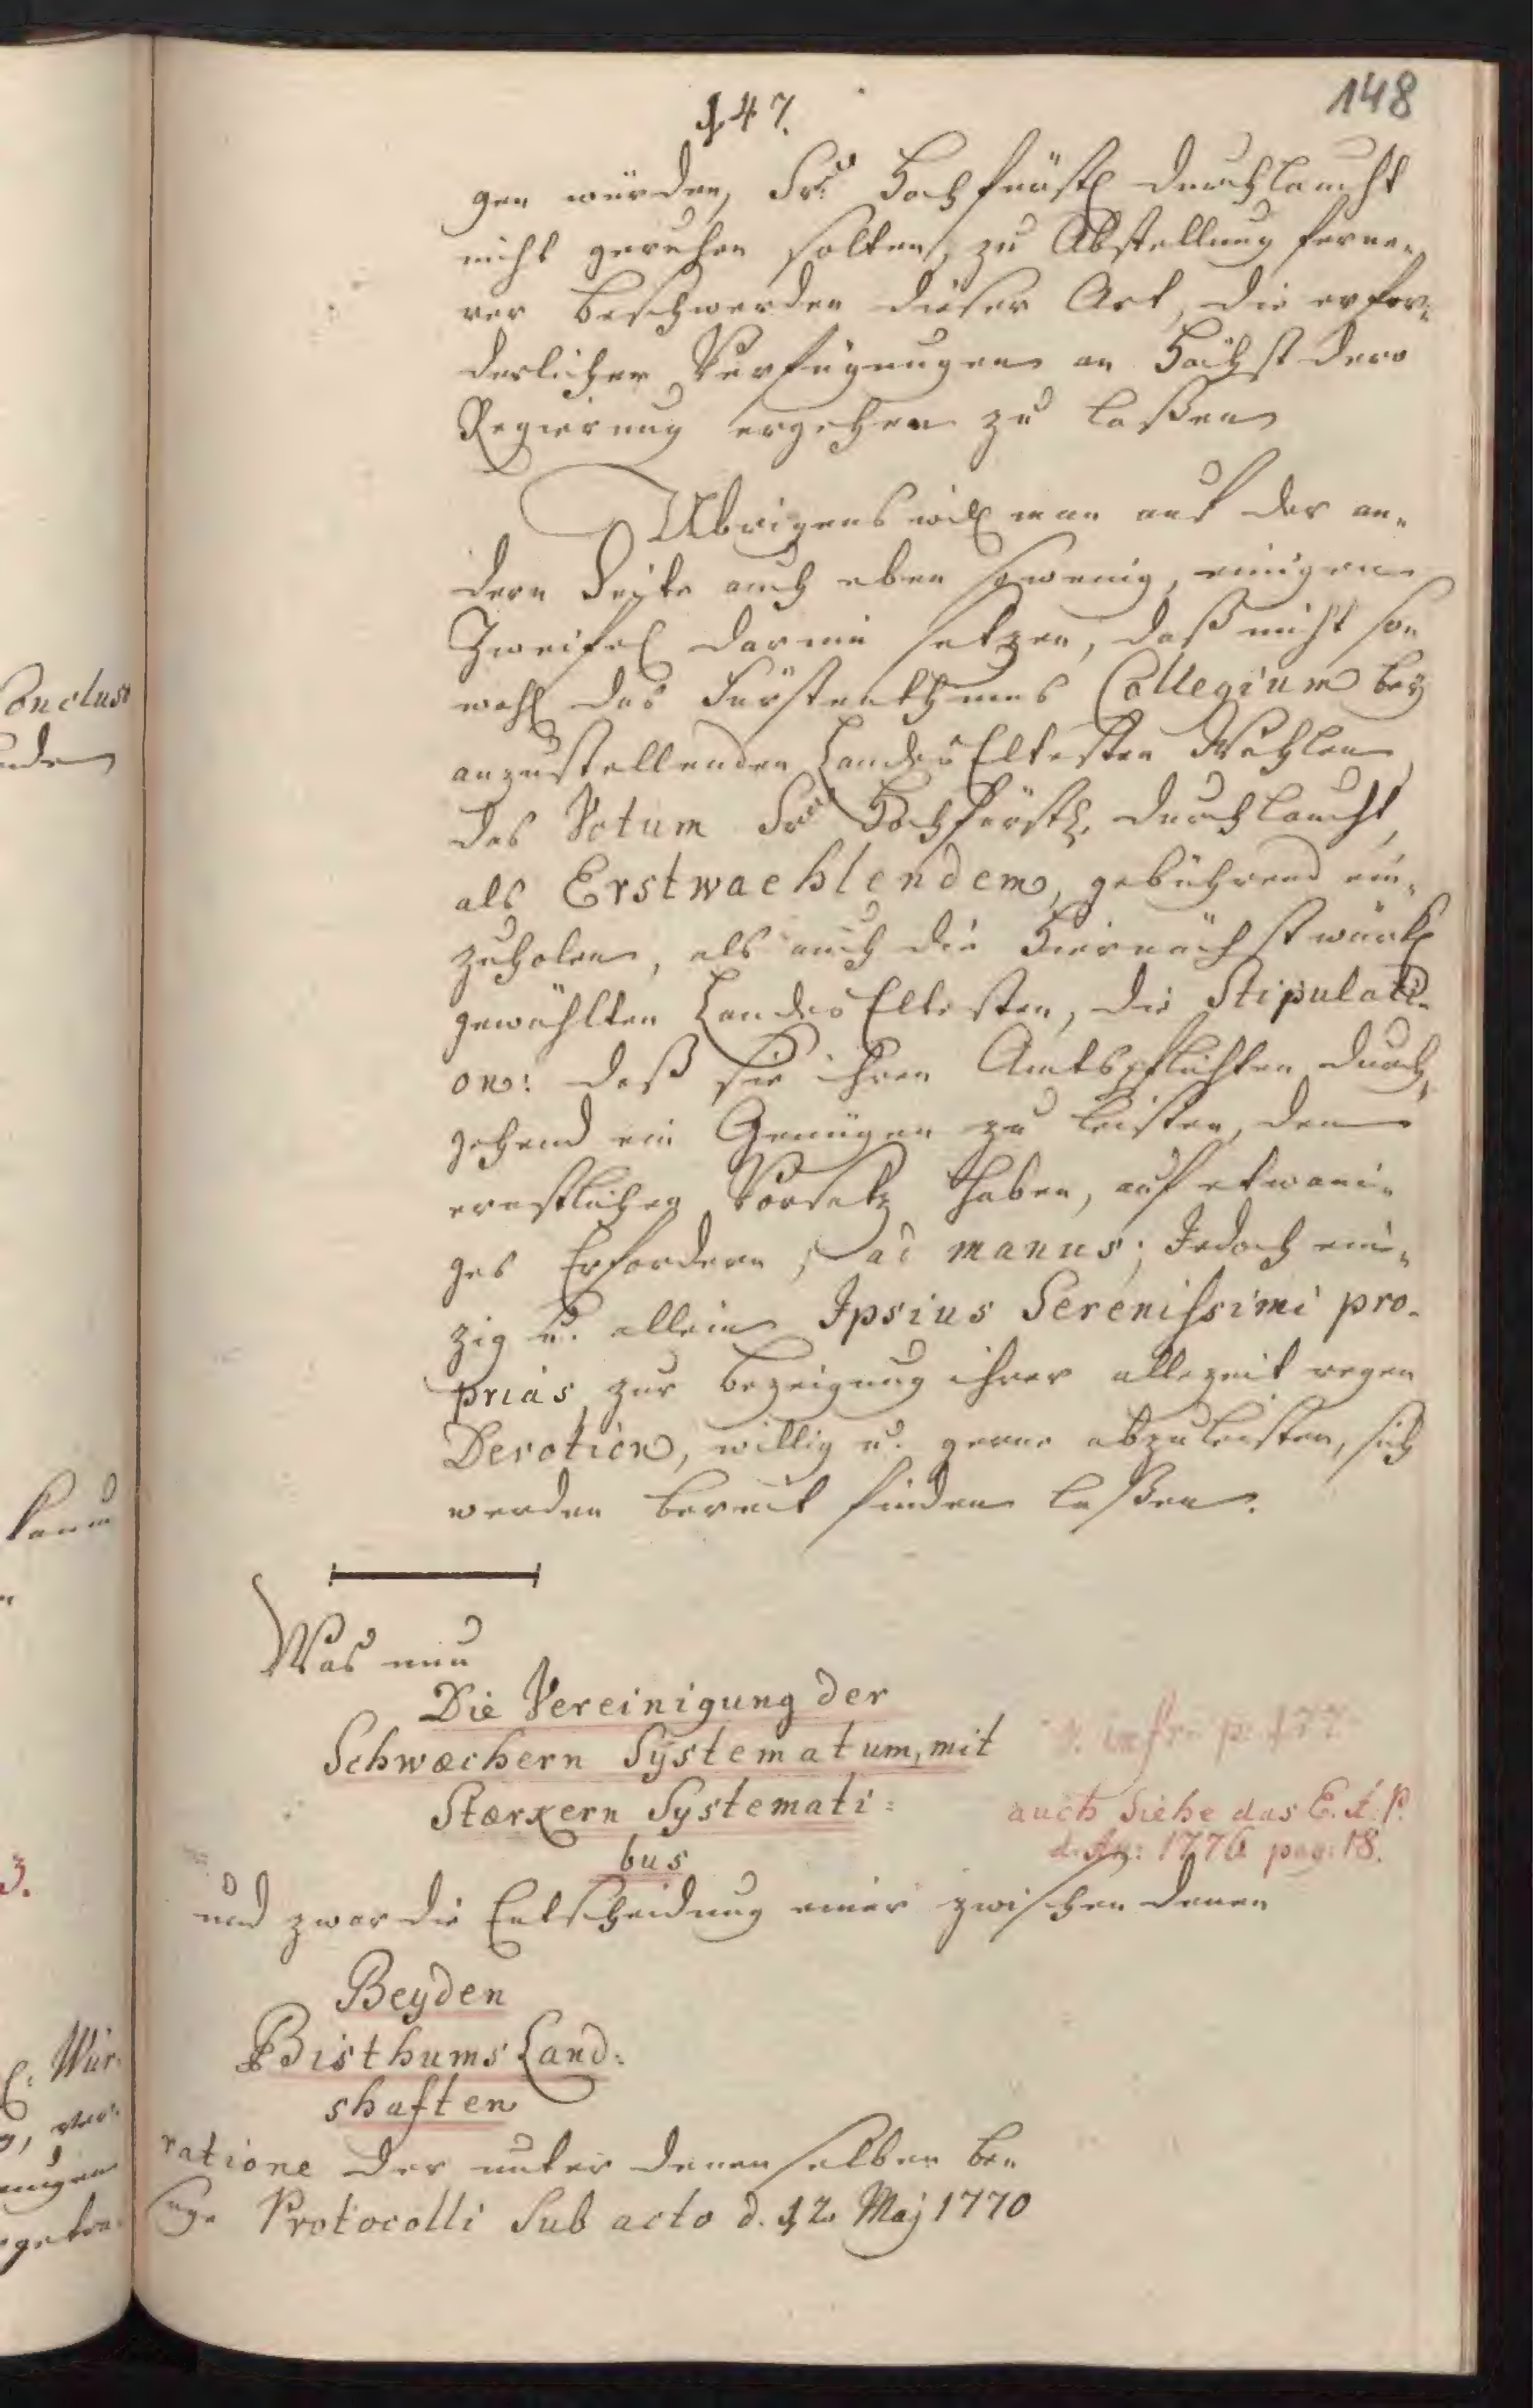 148
147.
gen würden, Sr. Hochfürstl Durchlaucht
nicht geruhen solten, zu Abstellung ferne-
rer Beschwerden dieser Art, die erfor-
derlichen Verfügungen an Höchst Dero
Regierung ergehen zu laßen
Ubrigens will man auf der an-
dern Seite auch eben sowenig, einigen
Zweifel darein setzen, daß nicht so-
wohl das Fürstenthums Collegium bey
anzustellenden Landes Eltesten Wahlen,
das Votum Sr. Hochfürstl. Durchlaucht,
als Erstwaehlendem, gebührend ein-
zuholen, als auch die Hiernächst würkl
gewählten Landes Eltesten, die Stipulati-
on: daß sie ihren Amtspflichten durch-
gehend ein Genügen zu leisten, den
ernstlichen Vorsatz haben, auf etwani-
ges Erfordern, ad manus; Jedoch ein-
zig u. allein Ipsius Serenissimi pro-
prias, zur Bezeigung ihrer allezeit regen
Devotion, willig u. gerne abzuleisten, sich
werden bereit finden laßen.
Was nun
Die Vereinigung der
Schwæchern Systematum, mit
Stærkern Systemati:
bus
v. infr. p. 177
auch Siehe das E. A. P.
d. An: 1776 pag: 18.
und zwar die Entscheidung einer zwischen denen
Beyden
Bisthums Land:
shaften
ratione der unter denenselben be-
sage Protocolli Sub acto d. 12. Maj 1770